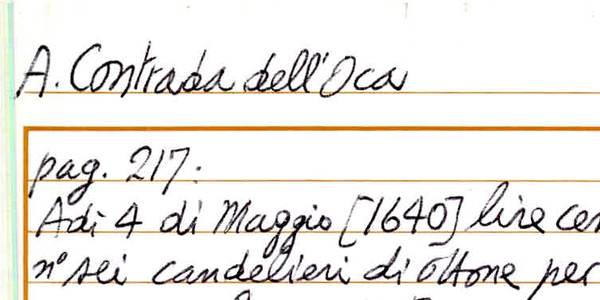 A. Contrada dell'Oca
pag. 217:
Adì 4 di Maggio [1640] lire
n° sei candelieri di ottone per